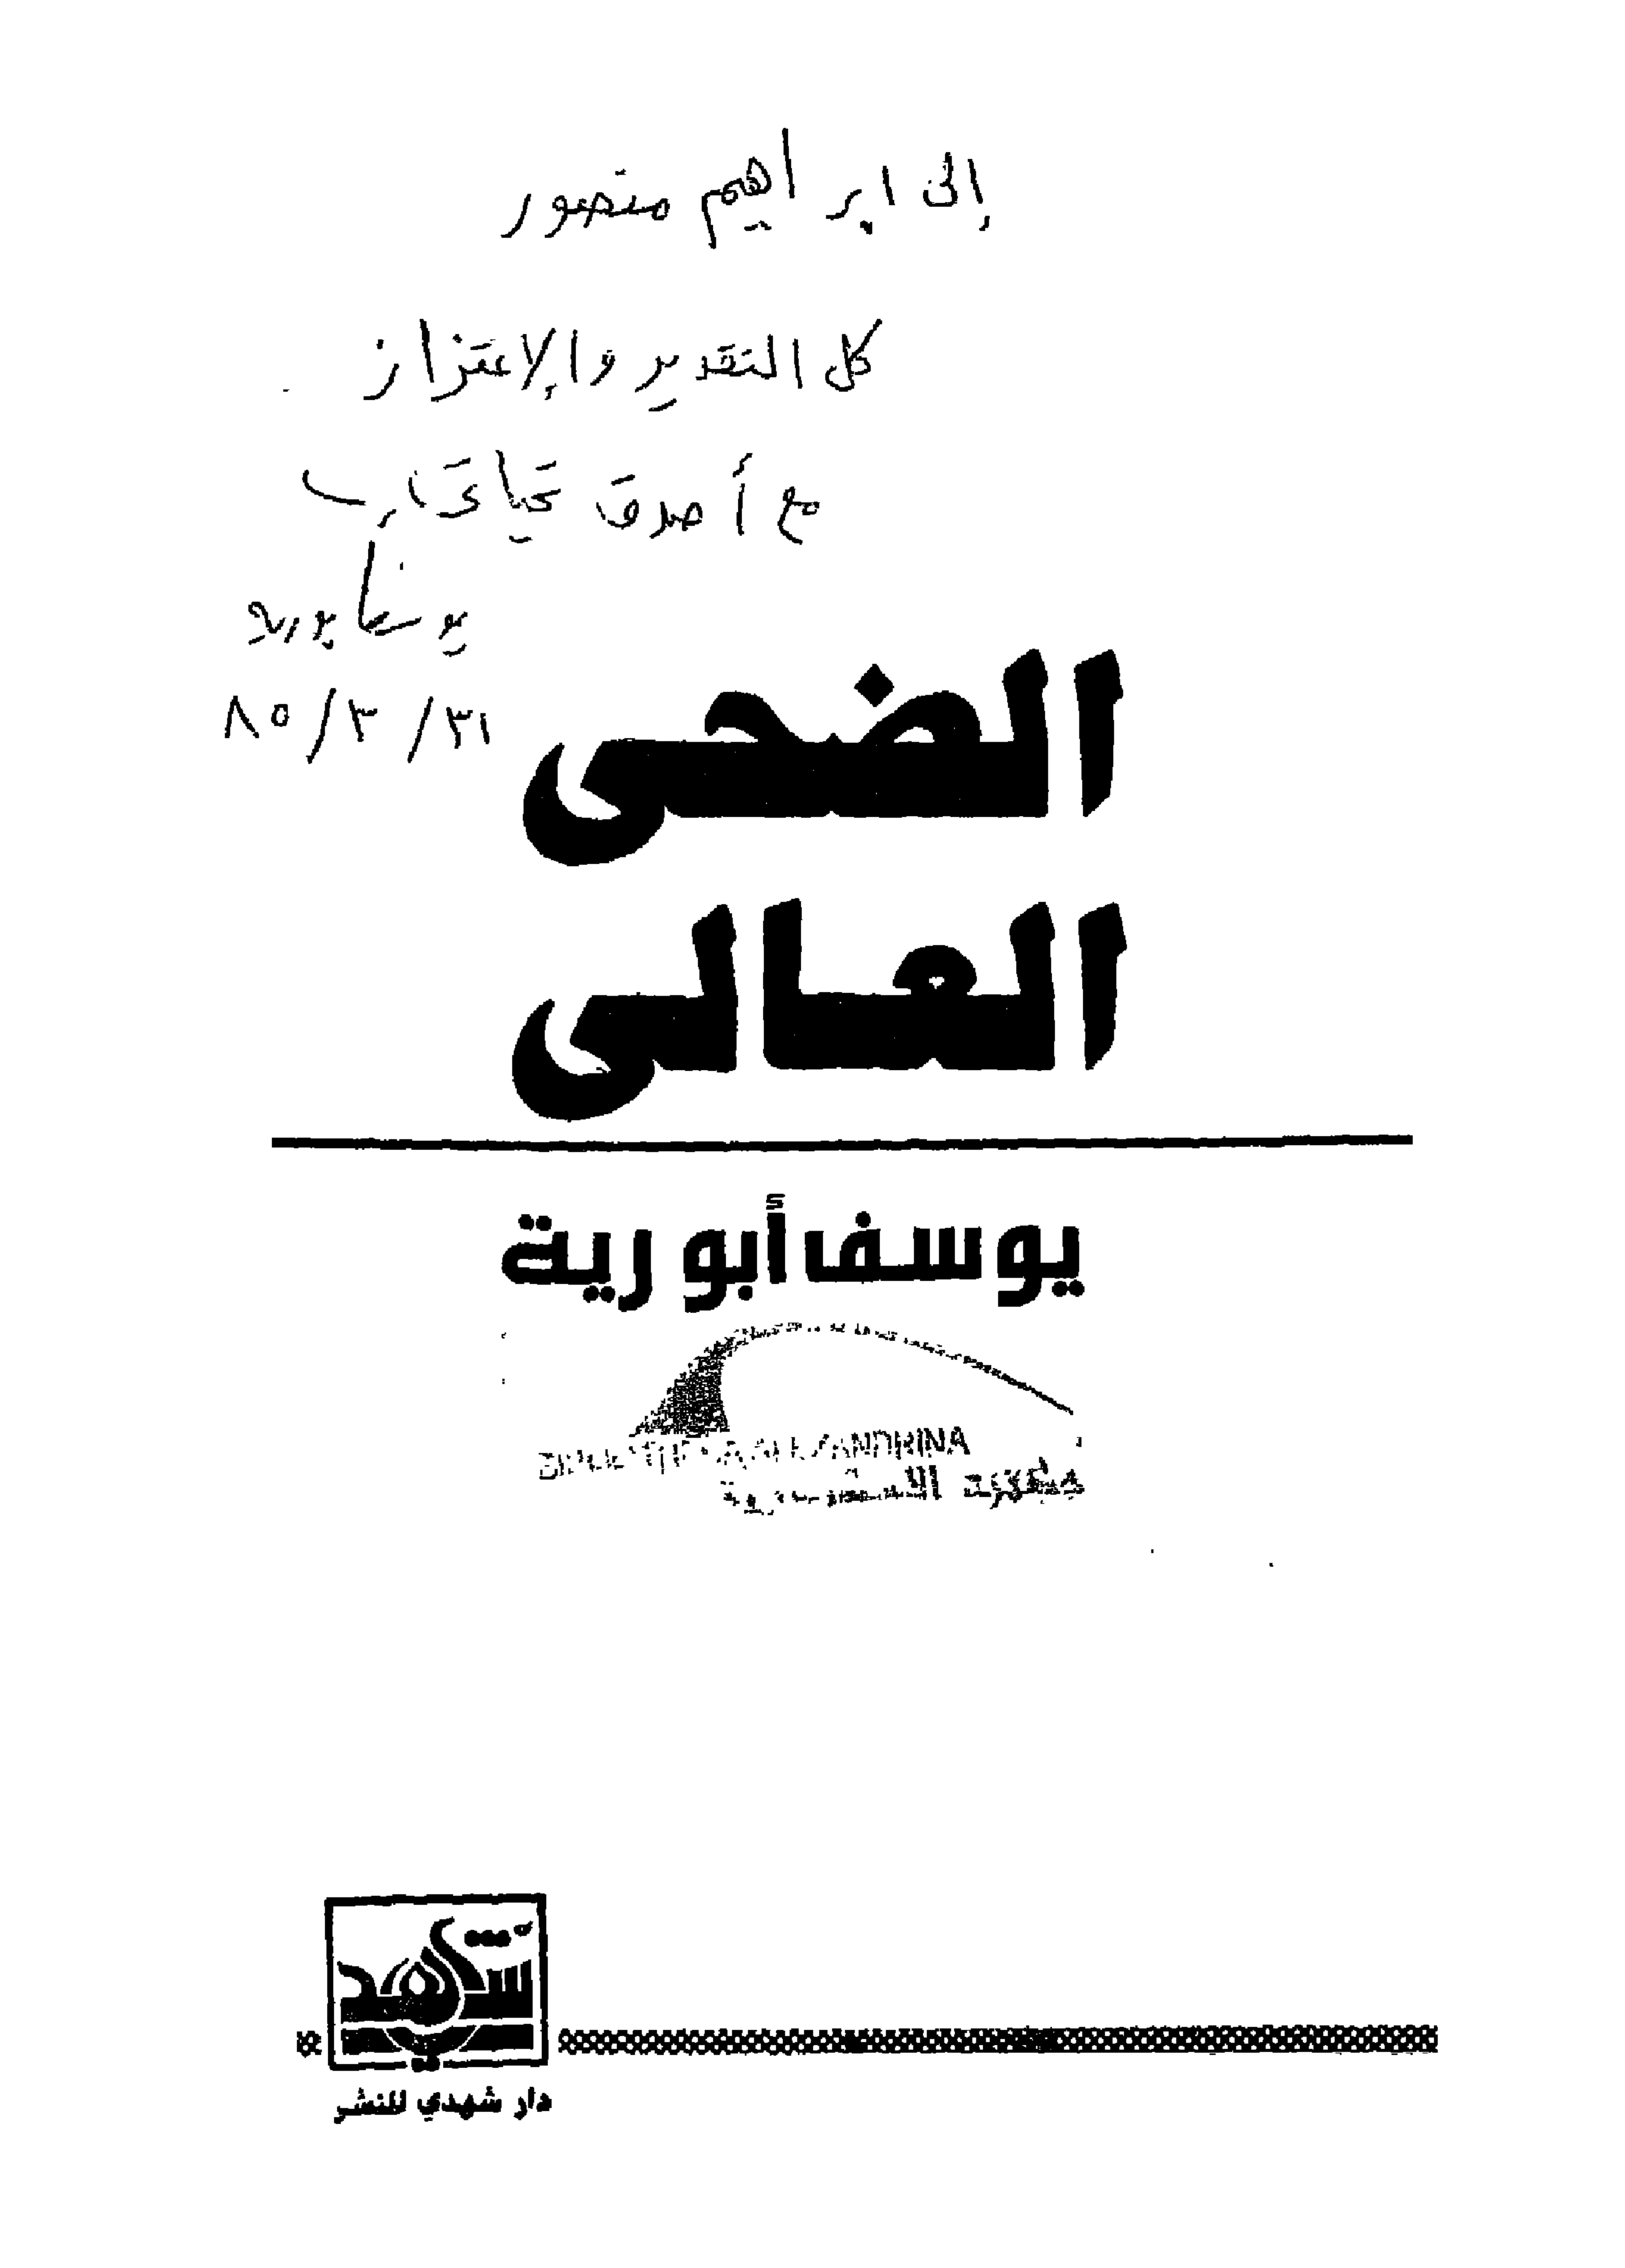 إلى ابراهيم منصور
كل التقدير والإعتزاز
مع أصدق تحياتى
يوسف أبورية
٣١/٣/٨٥
الضحى
العالى
يوسف أبورية
BIBLIOTHECA ALEXANDRINA
مكتبة الاسكندرية
شهدي
دار شهدي للنشر